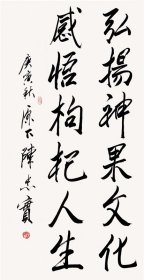 弘揚神果文化
感悟枸杞人生
庚寅秋原下陳忠實